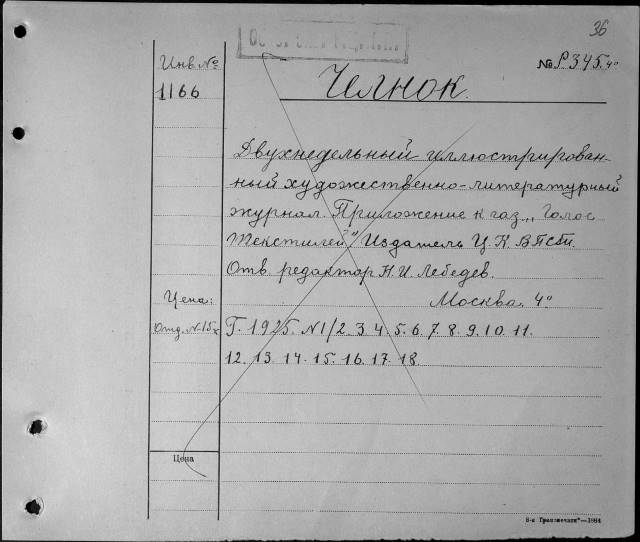 36
Инв №
№ P345.4°
1166
Челнок.
Двухнедельный иллюстрирован-
ный художественно-литературный
журнал. Приложение к газ. „Голос
Текстилей" Издатель Ц. К. В П С Т.
Отв. редактор Н. И. Лебедев.
Цена:
Москва. 4°
Отд. N. 15к
Г. 1925. N 1/2. 3. 4. 5. 6. 7. 8. 9. 10. 11.
12. 13. 14. 15. 16. 17. 18.
Цена